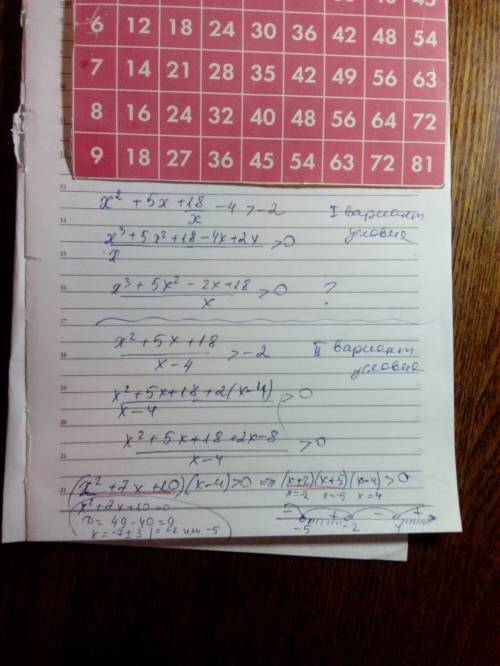 45
6 12 18 24 30 36 42 48 54
7 14 21 28 35 42 49 56 63
8 16 24 32 40 48 56 64 72
9 18 27 36 45 54 63 72 81
x² + 5x + 18/x - 4 > -2 I вариант условия
(x³ + 5x² + 18 - 4x + 2x)/x > 0
(x³ + 5x² - 2x + 18)/x > 0 ?
(x² + 5x + 18)/(x - 4) > -2 II вариант условия
(x² + 5x + 18 + 2(x - 4))/(x - 4) > 0
(x² + 5x + 18 + 2x - 8)/(x - 4) > 0
(x² + 7x + 10)(x - 4) > 0 => (x + 2)(x + 5)(x - 4) > 0
x = -2 x = -5 x = 4
x² + 7x + 10 = 0
D = 49 - 40 = 9
- + - +
-5 -2